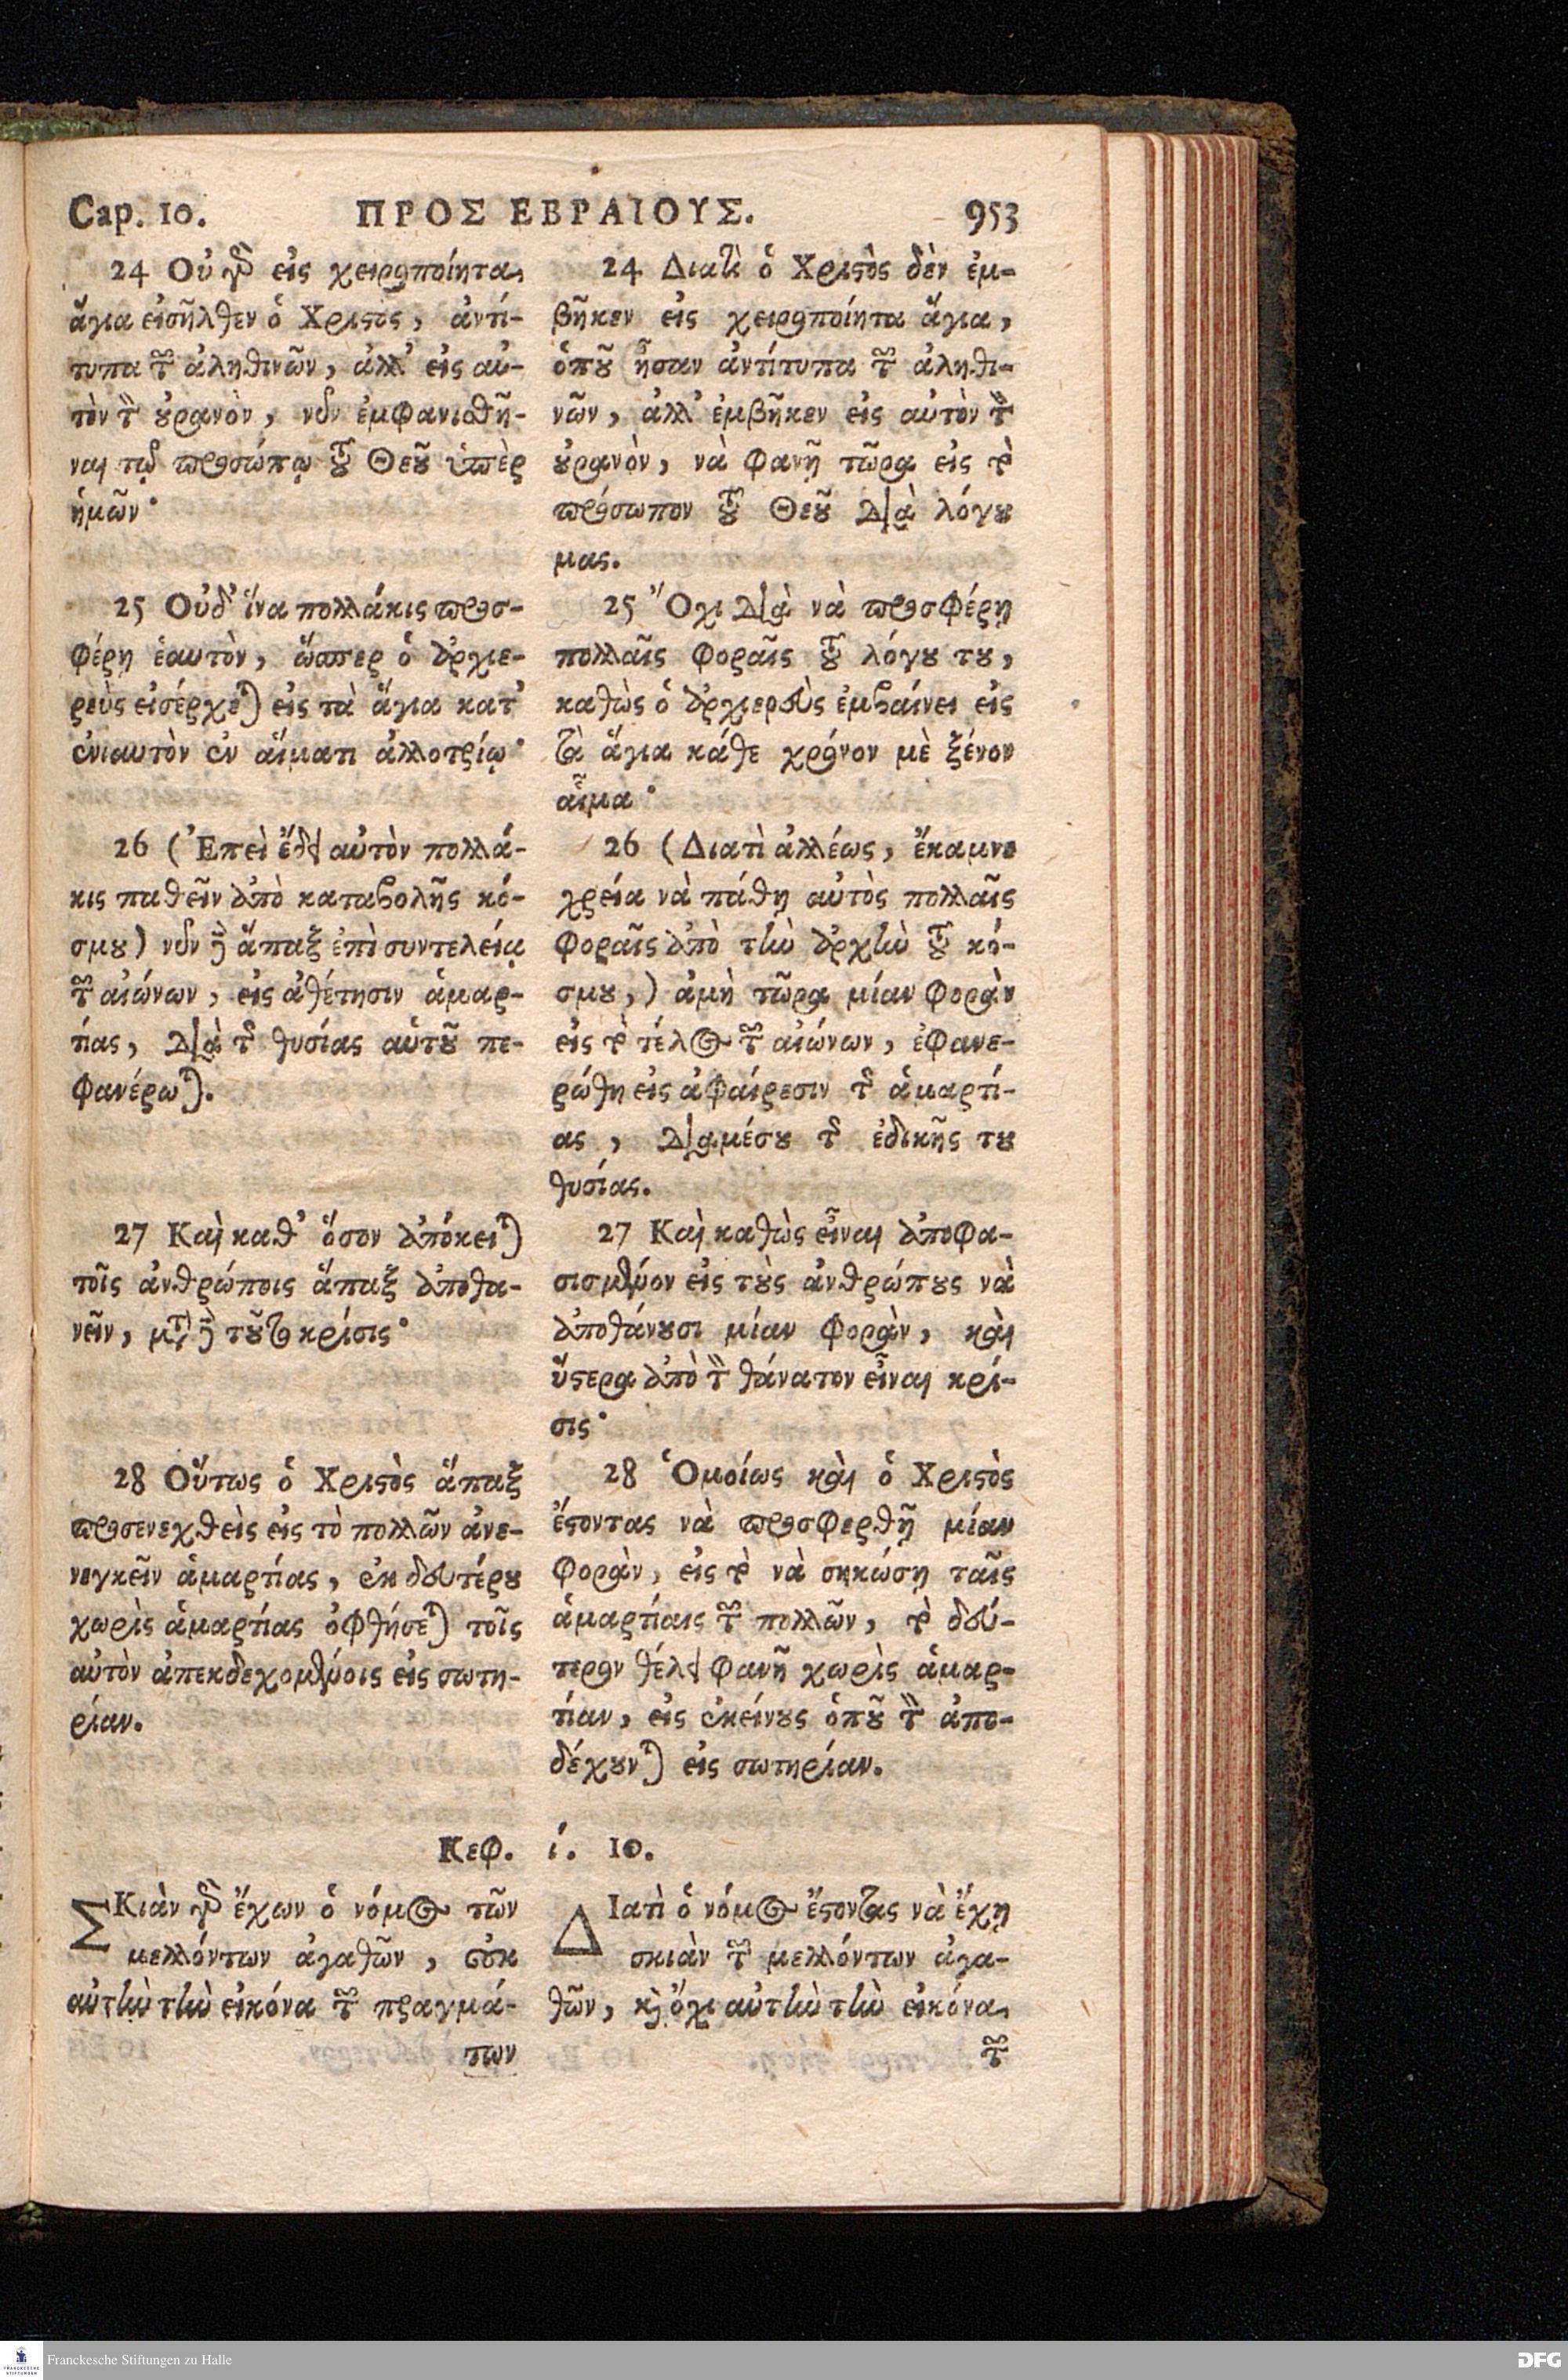 Cap. 10. ΠΡΟΣ ΕΒΡΑΙΟΥΣ. 953
24 Οὐ γὰρ εἰς χειροποίητα
ἅγια εἰσῆλθεν ὁ Χριστὸς, ἀντί-
τυπα τῶν ἀληθινῶν, ἀλλ' εἰς αὐ-
τὸν τὸν οὐρανὸν, νῦν ἐμφανισθῆ-
ναι τῷ προσώπῳ τοῦ Θεοῦ ὑπὲρ
ἡμῶν·
25 Οὐδ' ἵνα πολλάκις προσ-
φέρῃ ἑαυτὸν, ὥσπερ ὁ ἀρχιε-
ρεὺς εἰσέρχεται εἰς τὰ ἅγια κατ'
ἐνιαυτὸν ἐν αἵματι ἀλλοτρίῳ·
26 (Ἐπεὶ ἔδει αὐτὸν πολλά-
κις παθεῖν ἀπὸ καταβολῆς κό-
σμου) νῦν δὲ ἅπαξ ἐπὶ συντελείᾳ
τῶν αἰώνων, εἰς ἀθέτησιν ἁμαρ-
τίας, διὰ τῆς θυσίας αὑτοῦ πε-
φανέρωται.
27 Καὶ καθ' ὅσον ἀπόκειται
τοῖς ἀνθρώποις ἅπαξ ἀποθα-
νεῖν, μετὰ δὲ τοῦτο κρίσις·
28 Οὕτως ὁ Χριστὸς ἅπαξ
προσενεχθεὶς εἰς τὸ πολλῶν ἀνε-
νεγκεῖν ἁμαρτίας, ἐκ δευτέρου
χωρὶς ἁμαρτίας ὀφθήσεται τοῖς
αὐτὸν ἀπεκδεχομένοις εἰς σωτη-
ρίαν.
24 Διατὶ ὁ Χριστὸς δὲν ἐμ-
βῆκεν εἰς χειροποίητα ἅγια,
ὁποῦ ἦσαν ἀντίτυπα τῶν ἀληθι-
νῶν, ἀλλ' ἐμβῆκεν εἰς αὐτὸν τὸν
οὐρανὸν, νὰ φανῇ τῶρα εἰς τὸ
πρόσωπον τοῦ Θεοῦ διὰ λόγου
μας.
25 Ὄχι διὰ νὰ προσφέρῃ
πολλαῖς φοραῖς τοῦ λόγου του,
καθὼς ὁ ἀρχιερεὺς ἐμβαίνει εἰς
τὰ ἅγια κάθε χρόνον μὲ ξένον
αἷμα·
26 (Διατὶ ἀλλέως, ἔκαμνε
χρεία νὰ πάθῃ αὐτὸς πολλαῖς
φοραῖς ἀπὸ τὴν ἀρχὴν τοῦ κό-
σμου,) ἀμὴ τῶρα μίαν φορὰν
εἰς τὸ τέλος τῶν αἰώνων, ἐφανε-
ρώθη εἰς ἀφαίρεσιν τῆς ἁμαρτί-
ας, διαμέσου τῆς ἐδικῆς του
θυσίας.
27 Καὶ καθὼς εἶναι ἀποφα-
σισμένον εἰς τοὺς ἀνθρώπους νὰ
ἀποθάνουσι μίαν φορὰν, καὶ
ὕστερα ἀπὸ τὸν θάνατον εἶναι κρί-
σις·
28 Ὁμοίως καὶ ὁ Χριστὸς
ἔστοντας νὰ προσφερθῇ μίαν
φορὰν, εἰς τὸ νὰ σηκώσῃ ταῖς
ἁμαρτίαις τῶν πολλῶν, τὸ δεύ-
τερον θέλει φανῇ χωρὶς ἁμαρ-
τίαν, εἰς ἐκείνους ὁποῦ τὸν ἀπο-
δέχουνται εἰς σωτηρίαν.
Κεφ. ί. 10.
ΣΚιὰν γὰρ ἔχων ὁ νόμος τῶν
μελλόντων ἀγαθῶν, οὐκ
αὐτὴν τὴν εἰκόνα τῶν πραγμά-
των
ΔΙατὶ ὁ νόμος ἔστοντας νὰ ἔχῃ
σκιὰν τῶν μελλόντων ἀγα-
θῶν, καὶ ὄχι αὐτὴν τὴν εἰκόνα
τῶν
Franckesche Stiftungen zu Halle
FRANCKESCHE STIFTUNGEN
DFG